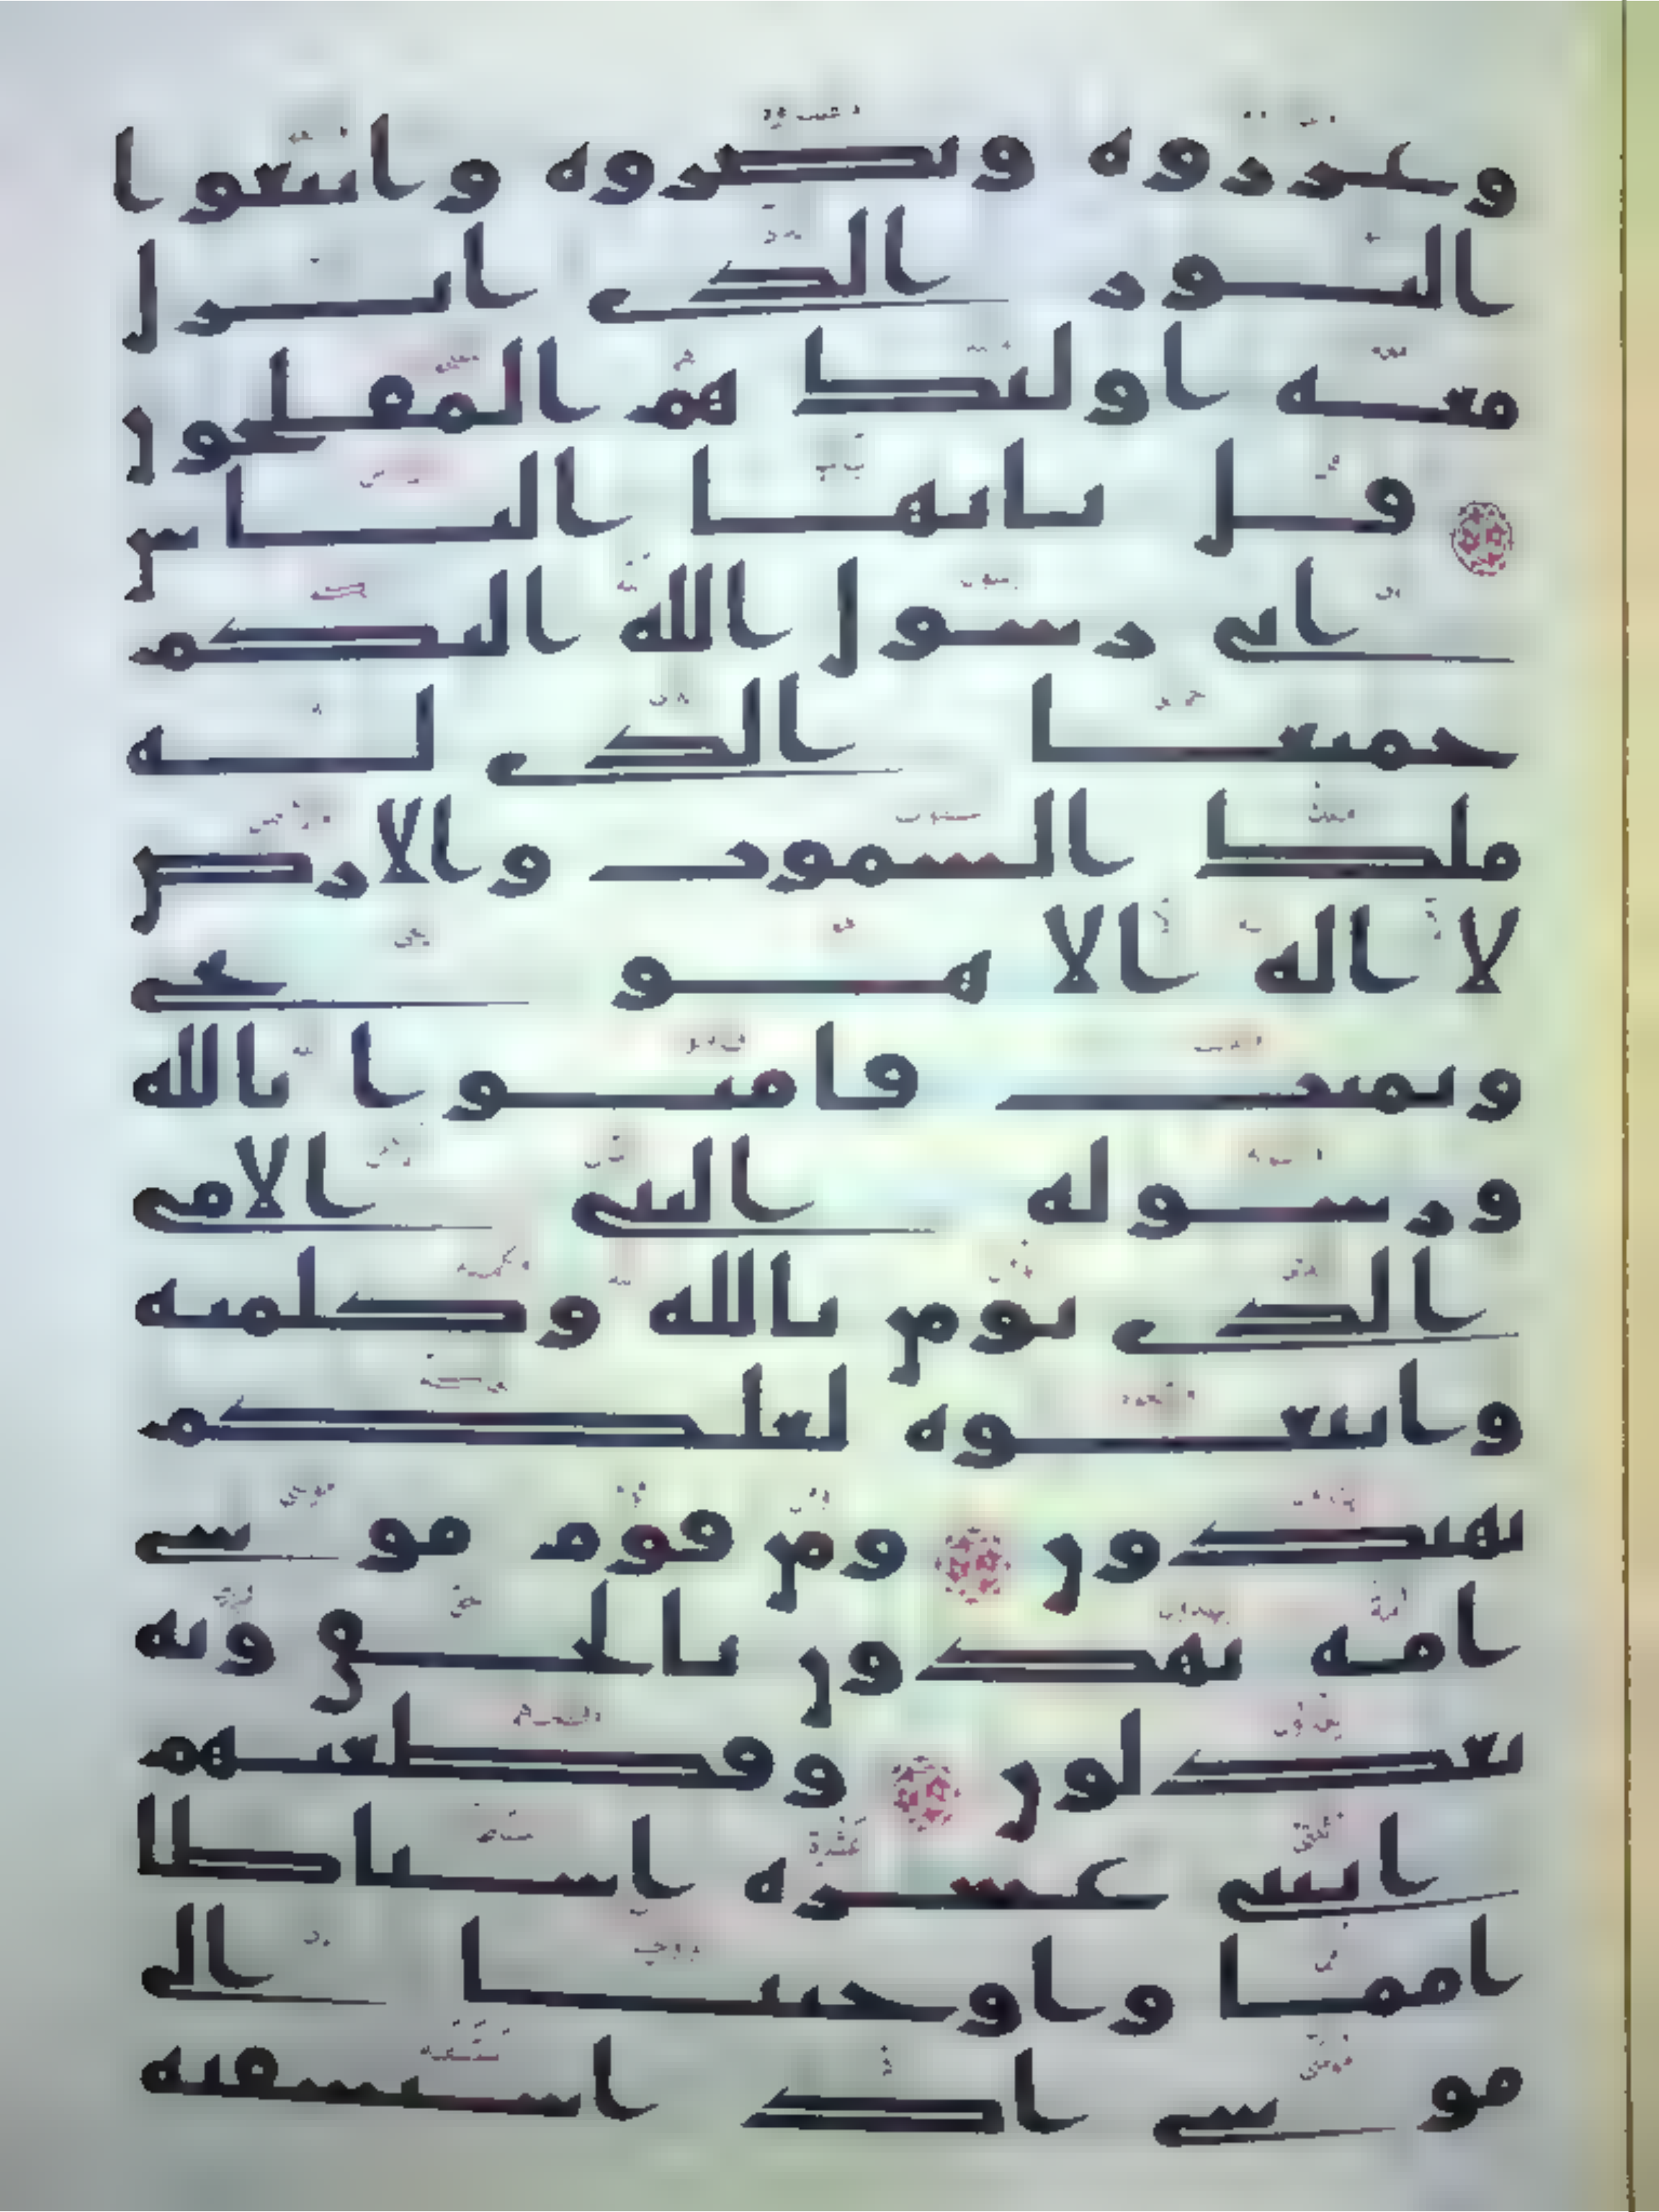 وعزروه ونصروه واتبعوا
النور الذي انزل
معه اولئك هم المفلحون
قل يايها الناس
اني رسول الله اليكم
جميعا الذي له
ملك السموت والارض
لا اله الا هو يحي
ويميت فامنوا بالله
ورسوله النبي الامي
الذي يومن بالله وكلمته
واتبعوه لعلكم
تهتدون ومن قوم موسى
امة يهدون بالحق وبه
يعدلون وقطعنهم
اثنتي عشرة اسباطا
امما واوحينا الى
موسى اذ استسقيه